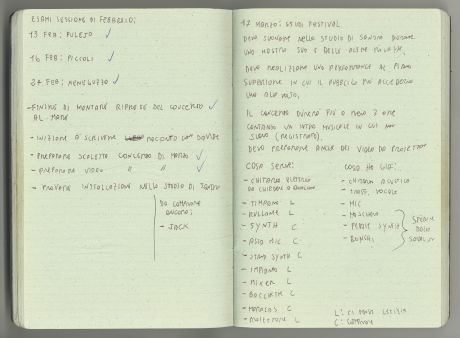 ESAMI SESSIONE DI FEBBRAIO:
13 FEB: PULEJO
16 FEB: PICCOLI
27 FEB: MENEGUZZO
- FINIRE DI MONTARE RIPRESE DEL CONCERTO
AL MARE
- INIZIARE A SCRIVERE RACCONTO CON DAVIDE
- PREPARARE SCALETTA CONCERTO DI MARZO
- PREPARARE VIDEO " "
- PROVARE INSTALLAZIONE NELLO STUDIO DI
DA COMPRARE
ANCORA:
- JACK
17 MARZO: STUDI FESTIVAL
DEVO SUONARE NELLO STUDIO DI DURANTE
UNA MOSTRA SUA E DELLE ALTRE
DEVO REALIZZARE UNA PERFORMANCE AL PIANO
SUPERIORE IN CUI IL PUBBLICO PUÒ ACCEDERE
UNO ALLA VOLTA.
IL CONCERTO DURERÀ PIÙ O MENO 3 ORE
CONTANDO UN INTRO MUSICALE IN CUI NON
SUONO (REGISTRATO).
DEVO PREPARARE ANCHE DEI VIDEO DA PROIETTARE
COSA SERVE:
- CHITARRA ELETTRICA
- TIMPANO L
- RULLANTE L
- SYNTH C
- ASTA MIC C
- STAND SYNTH C
- IMPIANTO L
- MIXER L
- BACCHETTE C
- C
- L
COSA HO GIÀ:
- CHITARRA ACUSTICA
- VOCALE
- MIC
- MASCHERA
- PEDALE SYNTH
- BONGHI
SPERIAMO
SOLO
L: CI PENSA LETIZIA
C: COMPRARE